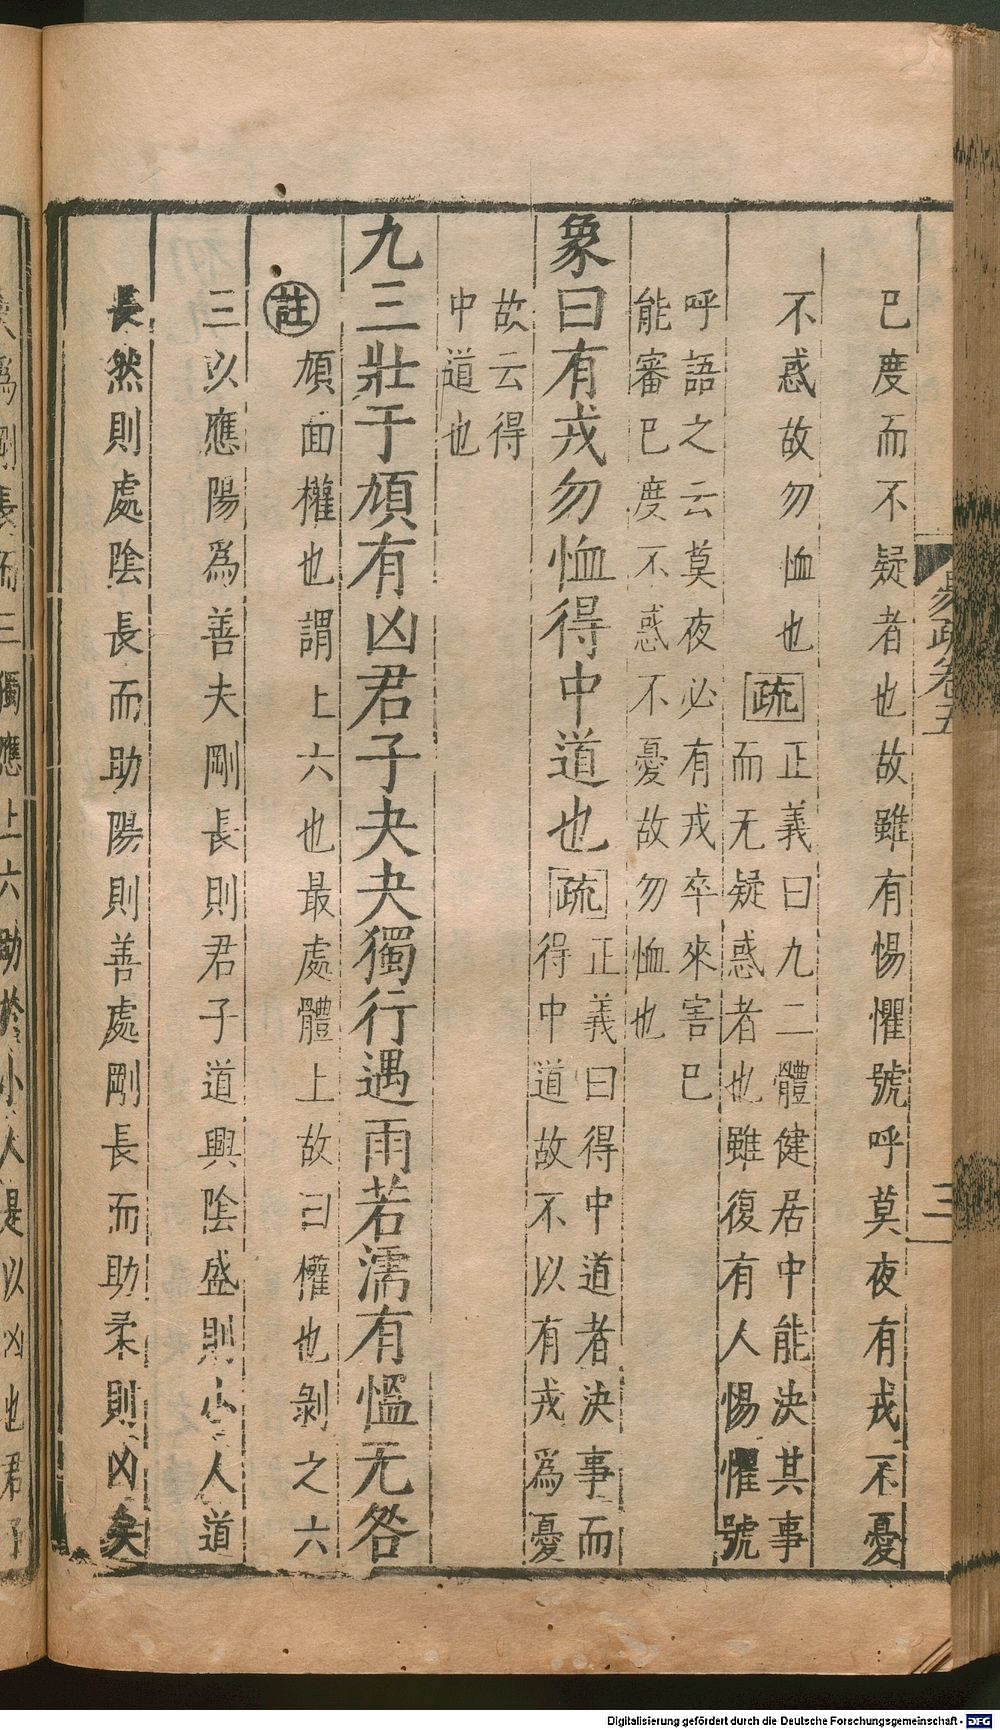 己度而不疑者也故雖有惕懼號呼莫夜有戎不憂
不惑故勿恤也疏正義曰九二體健居中能決其事
而无疑惑者也雖復有人惕懼號
呼語之云莫夜必有戎卒來害巳
能審巳度不惑不憂故勿恤也
象曰有戎勿恤得中道也疏正義曰得中道者決事而
得中道故不以有戎為憂
故云得
中道也
九三壯于頄有凶君子夬夬獨行遇雨若濡有慍无咎
註頄面權也謂上六也最處體上故曰權也剝之六
三以應陽爲善夫剛長則君子道興陰盛則小人道
長然則處陰長而助陽則善處剛長而助柔則凶矣
夬爲剛長而三獨應上六助於小人是以凶也君子
易疏卷五
三
Digitalisierung gefördert durch die Deutsche Forschungsgemeinschaft - DFG